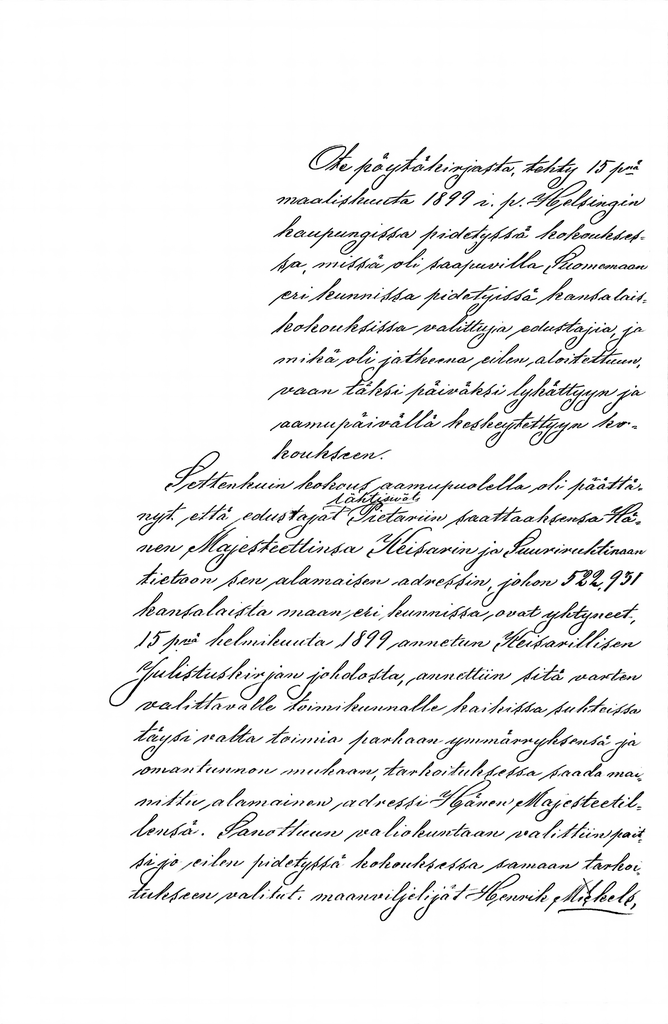 Ote pöytäkirjasta, tehty 15 p:nä
maaliskuuta 1899 i. p. Helsingin
kaupungissa pidetyssä kokoukses-
sa, missä oli saapuvilla Suomenmaan
eri kunnissa pidetyissä kansalais-
kokouksissa valittuja edustajia, ja
mikä oli jatkona eilen aloitettuun,
vaan täksi päiväksi lykättyyn ja
aamupäivällä keskeytettyyn ko-
koukseen.
Settenkuin kokous aamupuolella oli päättä-
lähtisivät
nyt, että edustajat Pietariin saattaaksensa Hä-
nen Majesteettinsa Keisarin ja Suuriruhtinaan
tietoon sen alamaisen adressin, johon 522,931
kansalaista maan eri kunnissa ovat yhtyneet,
15 p:nä helmikuuta 1899 annetun Keisarillisen
Julistuskirjan johdosta, annettiin sitä varten
valittavalle toimikunnalle kaikissa suhteissa
täysi valta toimia parhaan ymmärryksensä ja
omantunnon mukaan, tarkoituksessa saada mai-
nittu alamainen adressi Hänen Majesteetil-
lensä. Sanottuun valiokuntaan valittiin pait-
si jo eilen pidetyssä kokouksessa samaan tarkoi-
tukseen valitut: maanviljelijät Henrik Mickels,